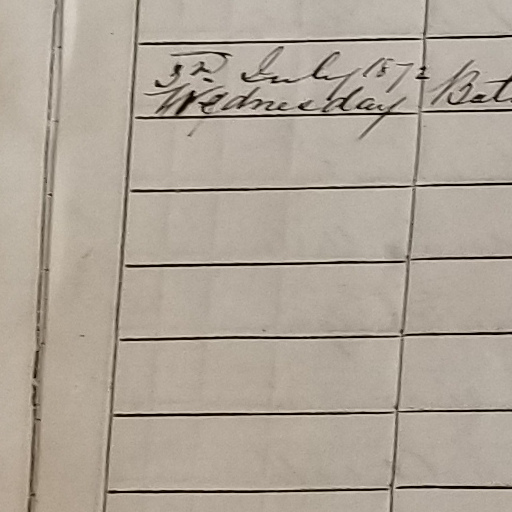 3rd July 1872
Wednesday Bat